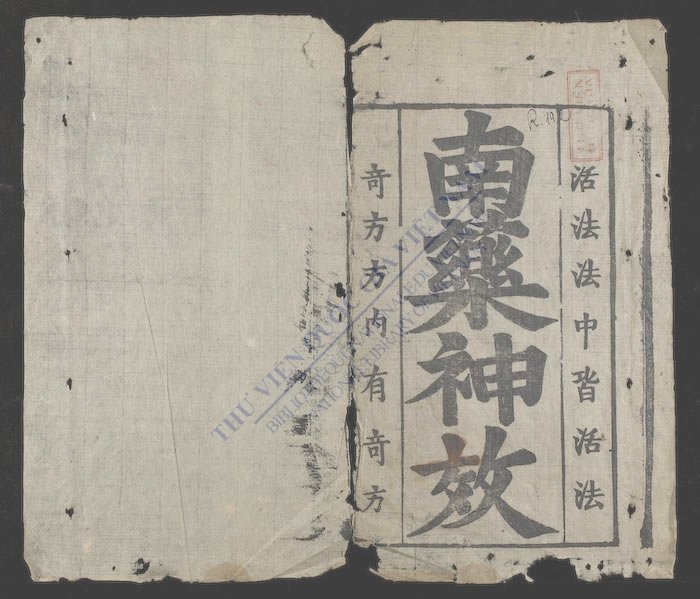 活法法中皆活法
南藥神效
奇方方内有奇方
R.19
THƯ VIỆN QUỐC GIA VIỆT NAM
BIBLIOTHÈQUE NATIONALE DU VIETNAM
NATIONAL LIBRARY OF VIETNAM